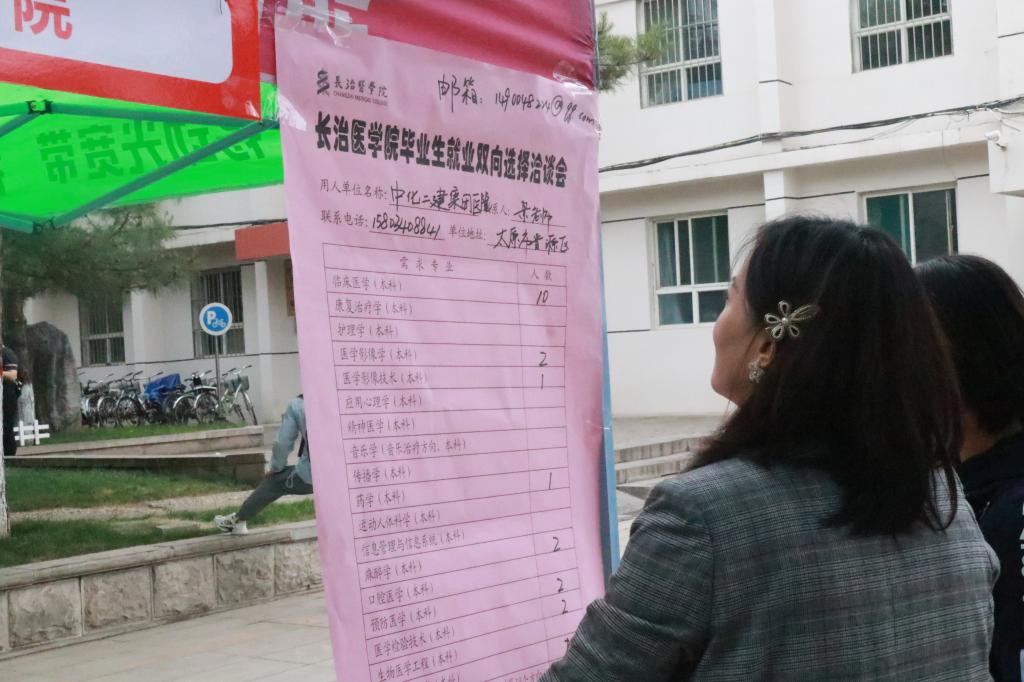 院
带宽光
長治醫學院
CHANGZHI MEDICAL COLLEGE
邮箱：149004822@qq.com
长治医学院毕业生就业双向选择洽谈会
用人单位名称：中化二建集团医院 联系人：景老师
联系电话：15803408841 单位地址：太原市晋源区
需求专业 人数
临床医学（本科） 10
康复治疗学（本科）
护理学（本科）
医学影像学（本科） 2
医学影像技术（本科） 1
应用心理学（本科）
精神医学（本科）
音乐学（音乐治疗方向、本科）
传播学（本科）
药学（本科） 1
运动人体科学（本科）
信息管理与信息系统（本科）
麻醉学（本科） 2
口腔医学（本科）
预防医学（本科） 2
医学检验技术（本科） 2
生物医学工程（本科）
P